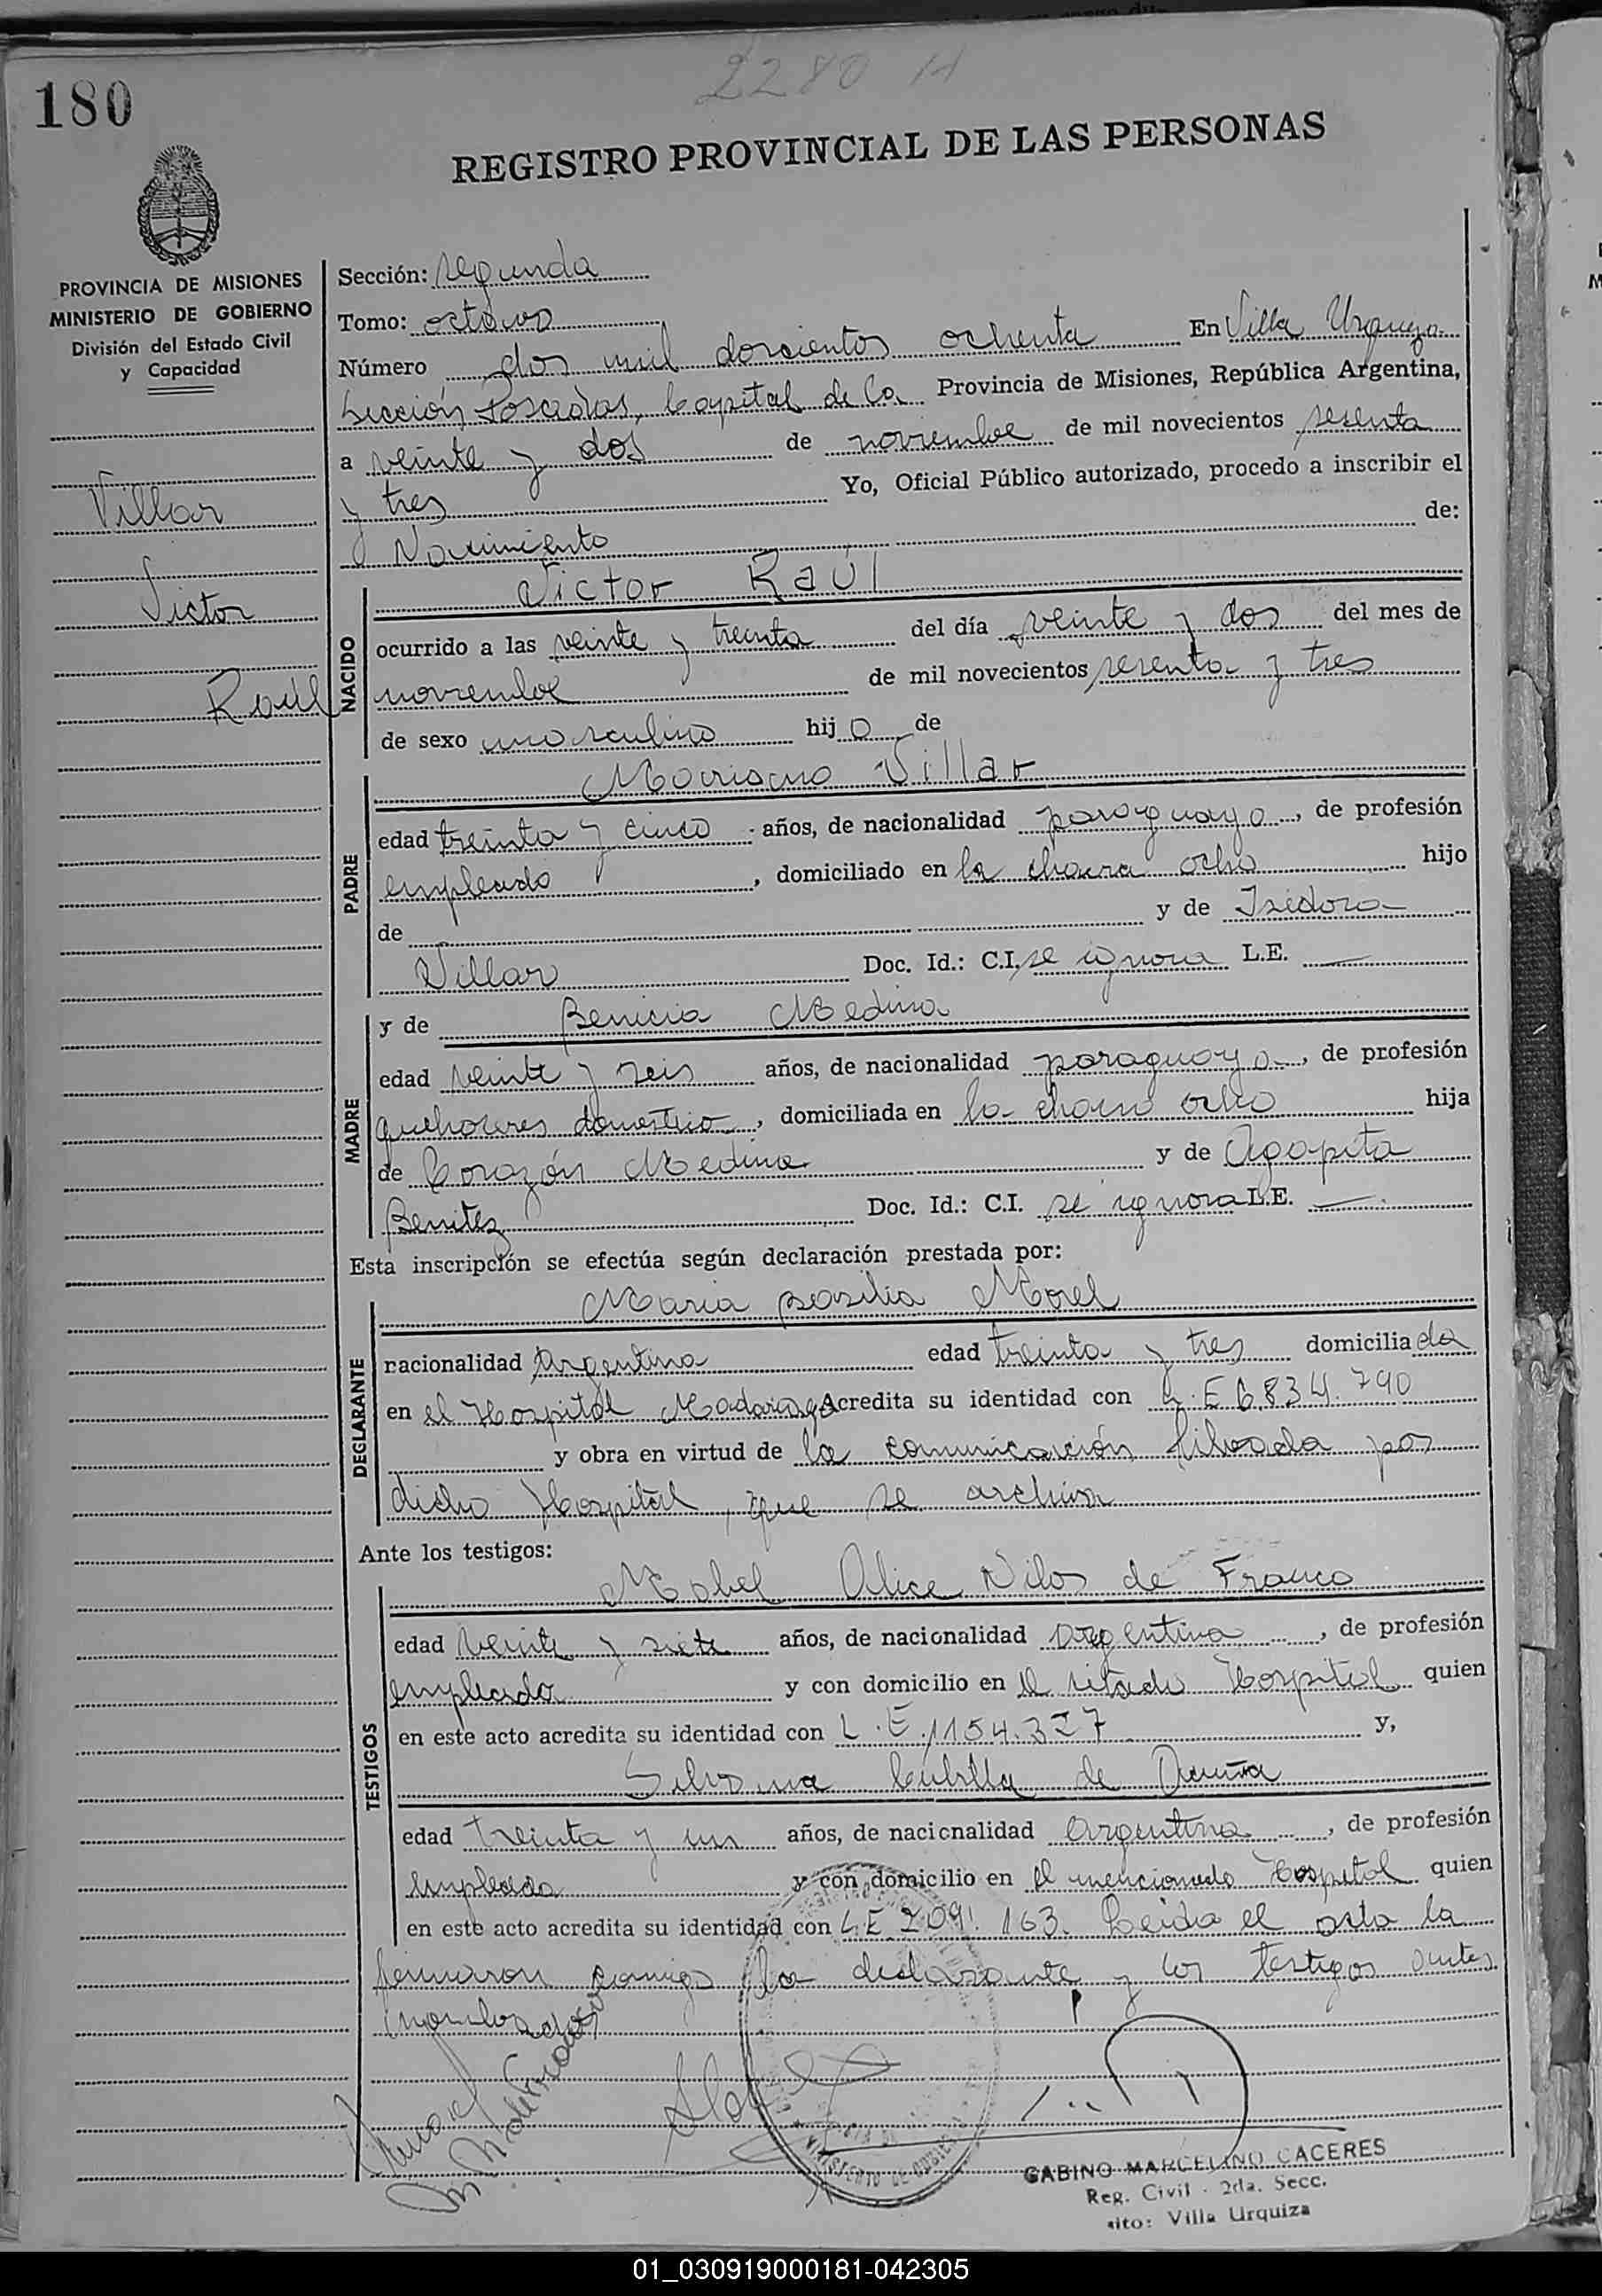 2280 H
180
REGISTRO PROVINCIAL DE LAS PERSONAS
PROVINCIA DE MISIONES
MINISTERIO DE GOBIERNO
División del Estado Civil
y Capacidad
Villar
Victor
Raúl
Sección: segunda
Tomo: octavo
Número dos mil doscientos ochenta En Villa Urquiza
Sección Posadas, Capital de la Provincia de Misiones, República Argentina,
a veinte y dos de noviembre de mil novecientos sesenta
y tres Yo, Oficial Público autorizado, procedo a inscribir el
Nacimiento de:
NACIDO
Victor Raúl
ocurrido a las veinte y treinta del día veinte y dos del mes de
noviembre de mil novecientos sesenta y tres
de sexo masculino hijo de
PADRE
Mariano Villar
edad treinta y cinco años, de nacionalidad paraguaya, de profesión
empleado, domiciliado en la chacra ocho hijo
de y de Isidora
Villar Doc. Id.: C.I. se ignora L.E. —
MADRE
y de Benicia Medina
edad veinte y seis años, de nacionalidad paraguaya, de profesión
quehaceres domestico, domiciliada en la chacra ocho hija
de Corazón Medina y de Agapita
Benitez Doc. Id.: C.I. se ignora L.E. —
Esta inscripción se efectúa según declaración prestada por:
DECLARANTE
Maria Morel
nacionalidad Argentina edad treinta y tres domiciliada
en el Hospital Madariaga Acredita su identidad con L.E 6.834.790
y obra en virtud de la comunicación librada por
dicho Hospital, que se archiva
Ante los testigos:
TESTIGOS
Mabel Alice de Franco
edad veinte y siete años, de nacionalidad Argentina, de profesión
empleada y con domicilio en el citado Hospital quien
en este acto acredita su identidad con L.E. 1154.327 y,
Silvana Cubilla de Acuña
edad treinta y un años, de nacionalidad Argentina, de profesión
empleada y con domicilio en el mencionado Hospital quien
en este acto acredita su identidad con L.E 209!.163. Leida el acta la
firmaron conmigo la declarante y los testigos antes
nombrados
MINISTERIO DE GOBIERNO
GABINO MARCELINO CACERES
Reg. Civil - 2da. Secc.
sito: Villa Urquiza
01_030919000181-042305